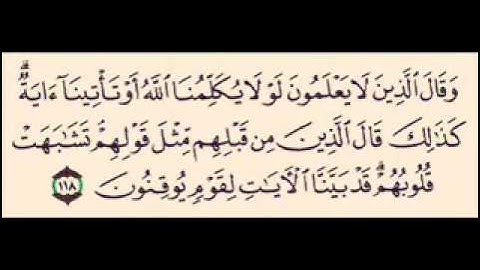 وَقَالَ ٱلَّذِينَ لَا يَعْلَمُونَ لَوْلَا يُكَلِّمُنَا ٱللَّهُ أَوْ تَأْتِينَآ ءَايَةٌۗ
كَذَٰلِكَ قَالَ ٱلَّذِينَ مِن قَبْلِهِم مِّثْلَ قَوْلِهِمْۘ تَشَٰبَهَتْ
قُلُوبُهُمْۗ قَدْ بَيَّنَّا ٱلْءَايَٰتِ لِقَوْمٍ يُوقِنُونَ ١١٨